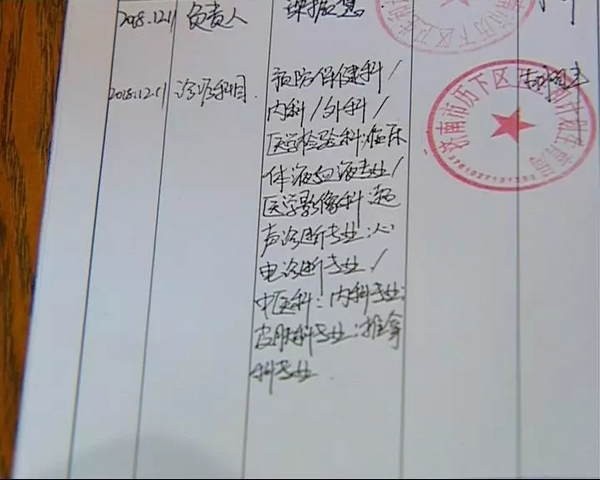 2018.12.11 负责人
2018.12.11 诊疗科目
预防保健科/
内科/外科/
医学检验科:临床
体液血液专业/
医学影像科:超
声诊断专业:心
电诊断专业/
中医科:内科专业;
皮肤科专业:推拿
科专业
济南市历下区